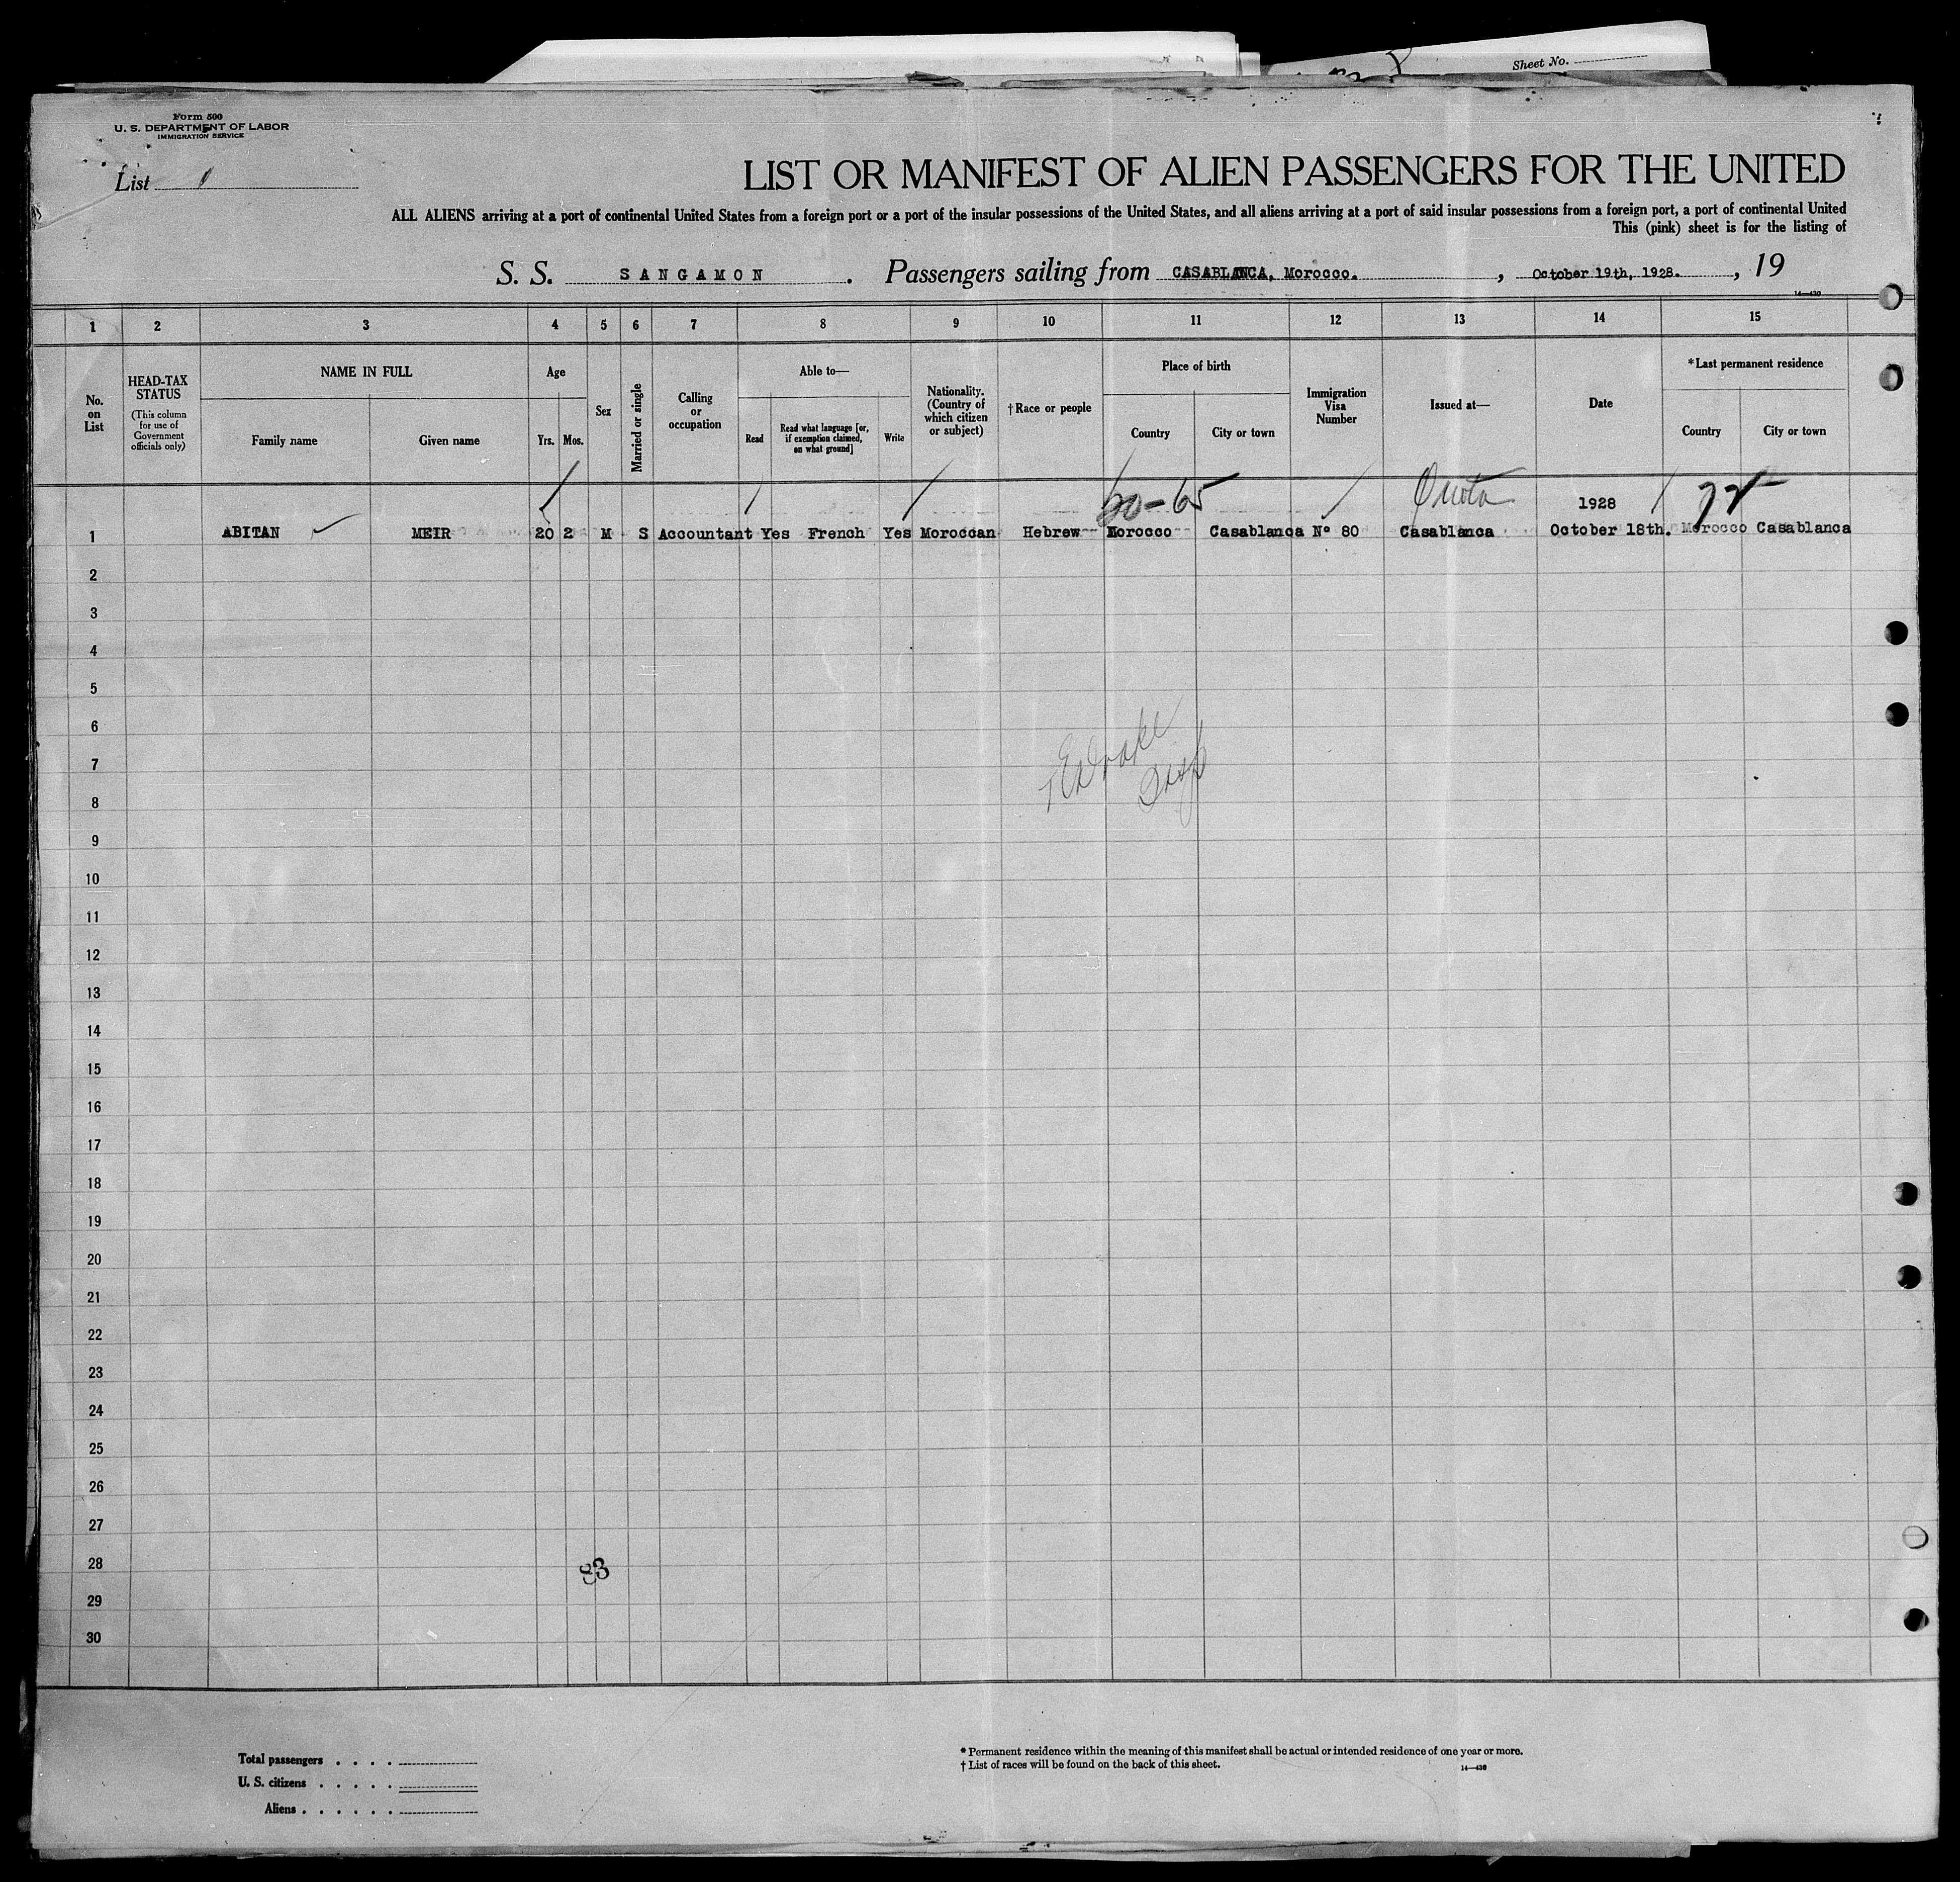 Sheet No.
Form 500
U. S. DEPARTMENT OF LABOR
IMMIGRATION SERVICE
List 1
LIST OR MANIFEST OF ALIEN PASSENGERS FOR THE UNITED
ALL ALIENS arriving at a port of continental United States from a foreign port or a port of the insular possessions of the United States, and all aliens arriving at a port of said insular possessions from a foreign port, a port of continental United
This (pink) sheet is for the listing of
S. S. SANGAMON . Passengers sailing from CASABLANCA, Morocco. , October 19th, 1928. , 19
14—430
1 2 3 4 5 6 7 8 9 10 11 12 13 14 15
No. on List
HEAD-TAX STATUS
(This column for use of Government officials only)
NAME IN FULL
Family name
Given name
Age
Yrs. Mos.
Sex
Married or single
Calling or occupation
Able to—
Read
Read what language [or, if exemption claimed, on what ground]
Write
Nationality. (Country of which citizen or subject)
† Race or people
Place of birth
Country
City or town
Immigration Visa Number
Issued at—
Date
* Last permanent residence
Country
City or town
20-65 Quota 1928
1 ABITAN MEIR 20 2 M S Accountant Yes French Yes Moroccan Hebrew Morocco Casablanca Nº 80 Casablanca October 18th. Morocco Casablanca
2
3
4
5
6
7
8
9
10
11
12
13
14
15
16
17
18
19
20
21
22
23
24
25
26
27
28
83
29
30
Total passengers . . . .
U. S. citizens . . . . .
Aliens . . . . . .
* Permanent residence within the meaning of this manifest shall be actual or intended residence of one year or more.
† List of races will be found on the back of this sheet.
14—430